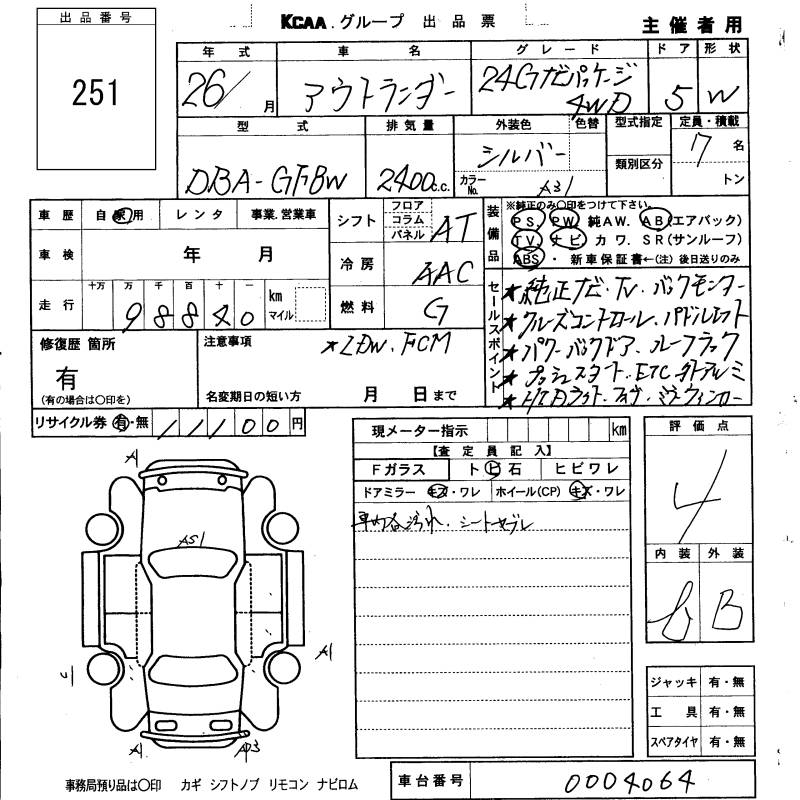 出品番号
251
KCAA.グループ 出品票
主催者用
年式 車名 グレード ドア 形状
26/ 月 アウトランダー 24Gナビパッケージ 4WD 5 W
型式 排気量 外装色 色替 型式指定 定員・積載
DBA-GF8W 2400c.c. シルバー 7名
カラーNo. A31 類別区分 トン
車歴 自家用 レンタ 事業.営業車
シフト フロア コラム パネル AT
車検 年 月
冷房 AAC
走行 十万 万 千 百 十 一 km マイル
98840
燃料 G
装備品
※純正のみ○印をつけて下さい。
PS. PW 純AW. AB(エアバック)
TV. ナビ カワ. SR(サンルーフ)
ABS・新車保証書←(注)後日送りのみ
セールスポイント
★純正ナビ.TV.バックモニター
★クルーズコントロール.パドルシフト
★パワーバックドア.ルーフラック
★プッシュスタート.ETC.外アルミ
修復歴 箇所
有
(有の場合は○印を)
注意事項
★LDW.FCM
名変期日の短い方 月 日まで
リサイクル券 有・無 11100円
現メーター指示 km
【査定員記入】
Fガラス トビ石 ヒビワレ
ドアミラー キズ・ワレ ホイール(CP) キズ・ワレ
車内各汚れ.シートスレ
評価点
4
内装 外装
B
A
AS1
A1
A1
ジャッキ 有・無
工具 有・無
スペアタイヤ 有・無
事務局預り品は○印 カギ シフトノブ リモコン ナビロム
車台番号 0004064